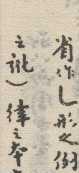 省作し形之例
之訛）律之本